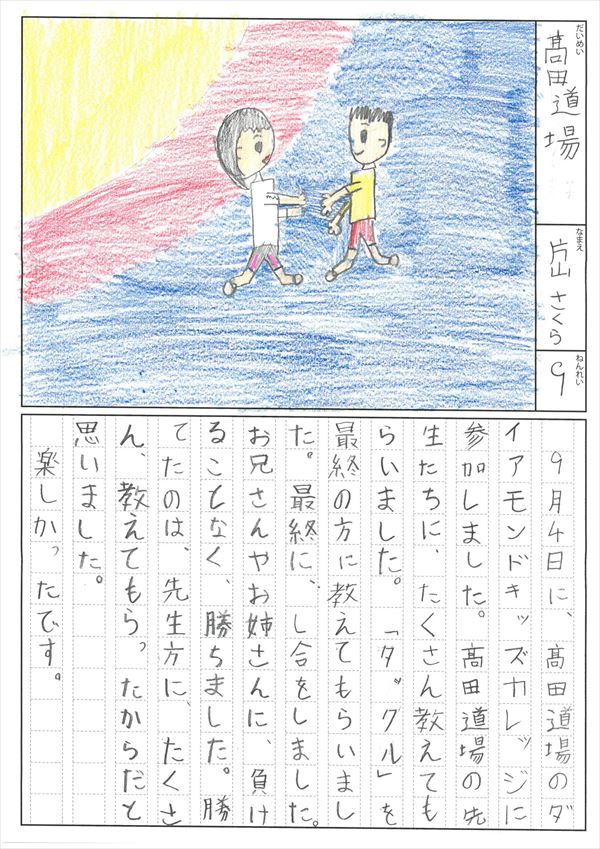 だいめい
髙田道場
なまえ
片山さくら
ねんれい
9
9月4日に、髙田道場のダ
イアモンドキッズカレッジに
参加しました。髙田道場の先
生たちに、たくさん教えても
らいました。「タックル」を
最終の方に教えてもらいまし
た。最終に、し合をしました。
お兄さんやお姉さんに、負け
ることなく、勝ちました。勝
てたのは、先生方に、たくさ
ん、教えてもらったからだと
思いました。
楽しかったです。